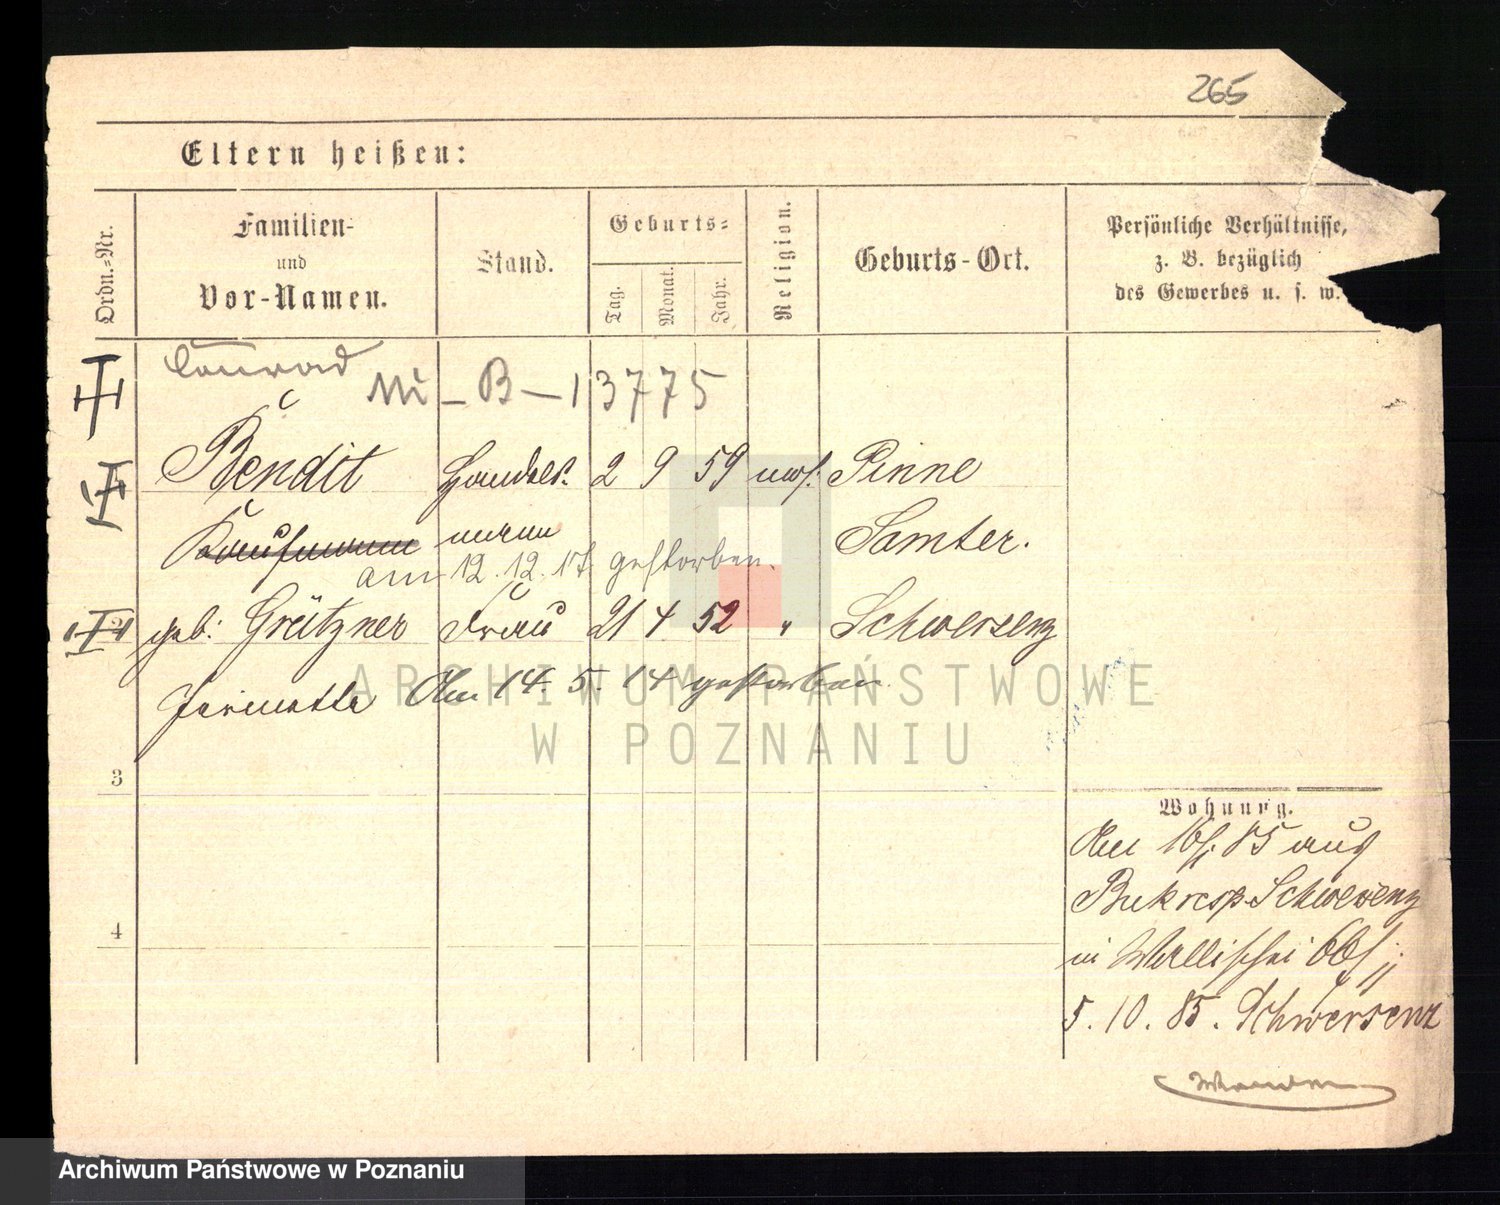 265
Eltern heißen:
Ordn.-Nr.
Familien-
und
Vor-Namen.
Stand.
Geburts-
Tag.
Monat.
Jahr.
Religion.
Geburts-Ort.
Persönliche Verhältnisse,
z. B. bezüglich
des Gewerbes u. s. w.
Conrad
- B - 13775
Bendit Handels- 2 9 59 mos. Pinne
Kaufmann mann Samter.
am 12. 12. 17 gestorben.
2 geb. Grützner Frau 21 4 52 " Schwersenz
Am 14. 5. 14 gestorben
ARCHIWUM PAŃSTWOWE
W POZNANIU
3
Wohnung.
85 aus
Buk resp. Schwersenz
in Wallischei
4
5. 10. 85. Schwersenz
Archiwum Państwowe w Poznaniu